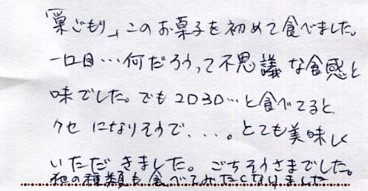 「巣ごもり」このお菓子を初めて食べました。
一口目…何だろうって不思議な食感と
味でした。でも2口3口…と食べてると
クセになりそうで・・・。とても美味しく
いただきました。ごちそうさまでした。
他の種類も食べてみたくなりました